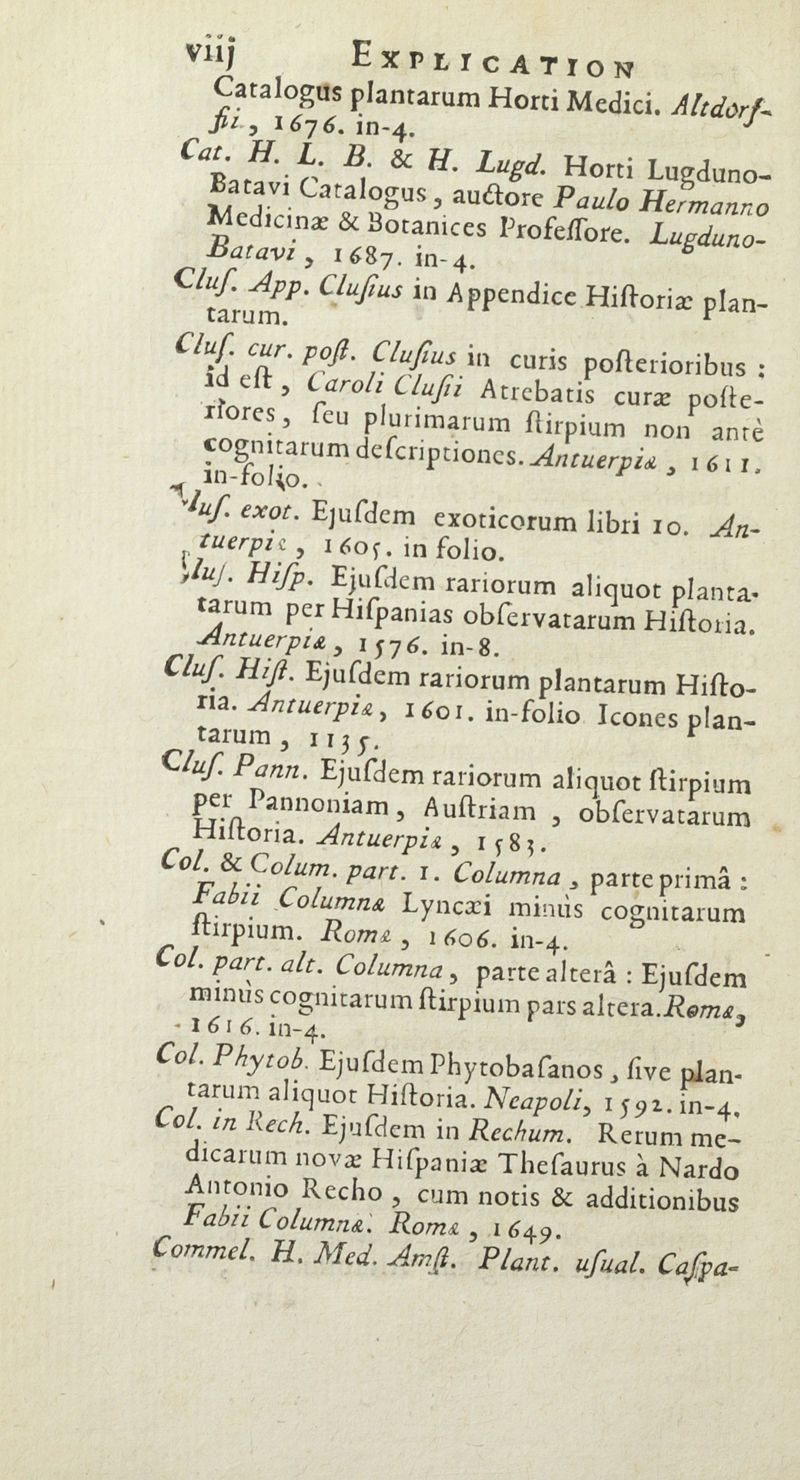 viij EXPLICATION
Catalogus plantarum Horti Medici. Altdorf-
fii, 1676. in-4.
Cat. H. L. B. & H. Lugd. Horti Lugduno-
Batavi Catalogus, auctore Paulo Hermanno
Medicinæ & Botanices Profeſſore. Lugduno-
Batavi, 1687. in-4.
Cluſ. App. Cluſius in Appendice Hiſtoriæ plan-
tarum.
Cluſ. cur. poſt. Cluſius in curis poſterioribus :
id eſt, Caroli Cluſii Atrebatis curæ poſte-
riores, ſeu plurimarum ſtirpium non antè
cognitarum deſcriptiones. Antuerpiæ, 1611.
in-folio.
Cluſ. exot. Ejuſdem exoticorum libri 10. An-
tuerpiæ, 1605. in folio.
Cluſ. Hiſp. Ejuſdem rariorum aliquot planta-
tarum per Hiſpanias obſervatarum Hiſtoria.
Antuerpiæ, 1576. in-8.
Cluſ. Hiſt. Ejuſdem rariorum plantarum Hiſto-
ria. Antuerpiæ, 1601. in-folio Icones plan-
tarum, 1135.
Cluſ. Pann. Ejuſdem rariorum aliquot ſtirpium
per Pannoniam, Auſtriam, obſervatarum
Hiſtoria. Antuerpiæ, 1583.
Col. & Colum. part. 1. Columna, parte primâ :
Fabii Columnæ Lyncæi minùs cognitarum
ſtirpium. Romæ, 1606. in-4.
Col. part. alt. Columna, parte alterâ : Ejuſdem
minùs cognitarum ſtirpium pars altera. Romæ,
1616. in-4.
Col. Phytob. Ejuſdem Phytobaſanos, ſive plan-
tarum aliquot Hiſtoria. Neapoli, 1592. in-4.
Col. in Rech. Ejuſdem in Rechum. Rerum me-
dicarum novæ Hiſpaniæ Theſaurus à Nardo
Antonio Recho, cum notis & additionibus
Fabii Columnæ. Romæ, 1649.
Commel. H. Med. Amſt. Plant. uſual. Caſpa-